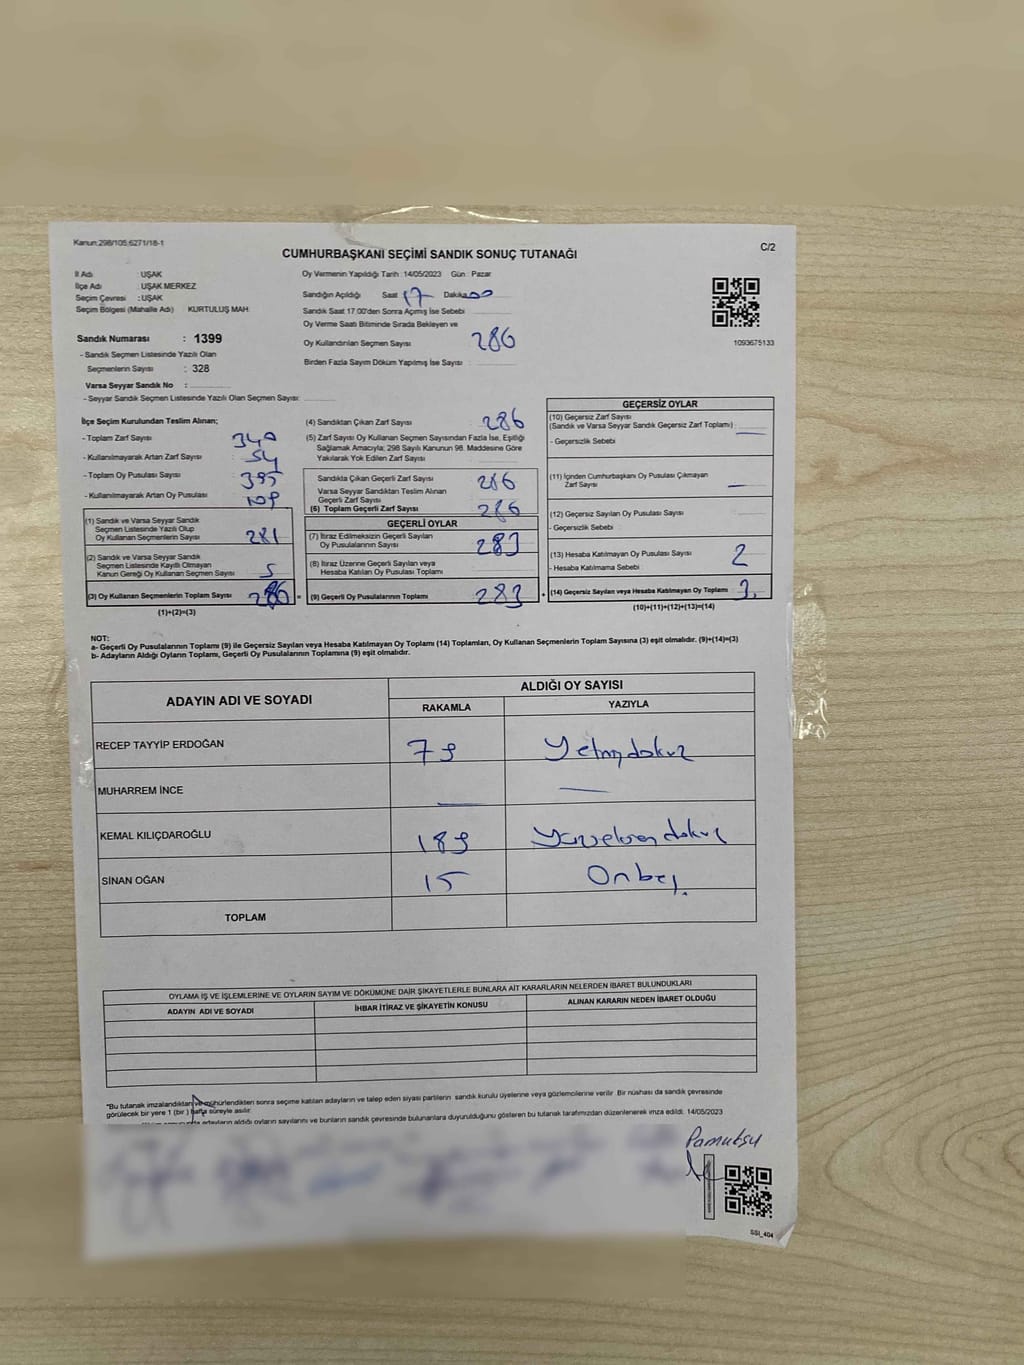 Kanun:298/105,6271/18-1
C/2
CUMHURBAŞKANI SEÇİMİ SANDIK SONUÇ TUTANAĞI
İl Adı : UŞAK
İlçe Adı : UŞAK MERKEZ
Seçim Çevresi : UŞAK
Seçim Bölgesi (Mahalle Adı) KURTULUŞ MAH.
Sandık Numarası : 1399
- Sandık Seçmen Listesinde Yazılı Olan
Seçmenlerin Sayısı : 328
Varsa Seyyar Sandık No :
- Seyyar Sandık Seçmen Listesinde Yazılı Olan Seçmen Sayısı:
Oy Vermenin Yapıldığı Tarih : 14/05/2023 Gün : Pazar
Sandığın Açıldığı Saat 17 Dakika 00
Sandık Saat 17.00'den Sonra Açılmış İse Sebebi
Oy Verme Saati Bitiminde Sırada Bekleyen ve
Oy Kullandırılan Seçmen Sayısı 286
Birden Fazla Sayım Döküm Yapılmış İse Sayısı :
1093675133
İlçe Seçim Kurulundan Teslim Alınan;
- Toplam Zarf Sayısı : 340
- Kullanılmayarak Artan Zarf Sayısı : 54
- Toplam Oy Pusulası Sayısı : 395
- Kullanılmayarak Artan Oy Pusulası : 109
(1) Sandık ve Varsa Seyyar Sandık
Seçmen Listesinde Yazılı Olup
Oy Kullanan Seçmenlerin Sayısı 281
(2) Sandık ve Varsa Seyyar Sandık
Seçmen Listesinde Kayıtlı Olmayan
Kanun Gereği Oy Kullanan Seçmen Sayısı 5
(3) Oy Kullanan Seçmenlerin Toplam Sayısı 286 =
(1)+(2)=(3)
(4) Sandıktan Çıkan Zarf Sayısı : 286
(5) Zarf Sayısı Oy Kullanan Seçmen Sayısından Fazla İse, Eşitliği
Sağlamak Amacıyla; 298 Sayılı Kanunun 98. Maddesine Göre
Yakılarak Yok Edilen Zarf Sayısı :
Sandıkta Çıkan Geçerli Zarf Sayısı 286
Varsa Seyyar Sandıktan Teslim Alınan
Geçerli Zarf Sayısı
(6) Toplam Geçerli Zarf Sayısı 286
GEÇERLİ OYLAR
(7) İtiraz Edilmeksizin Geçerli Sayılan
Oy Pusulalarının Sayısı 283
(8) İtiraz Üzerine Geçerli Sayılan veya
Hesaba Katılan Oy Pusulası Toplamı
(9) Geçerli Oy Pusulalarının Toplamı 283 +
GEÇERSİZ OYLAR
(10) Geçersiz Zarf Sayısı
(Sandık ve Varsa Seyyar Sandık Geçersiz Zarf Toplamı) :
- Geçersizlik Sebebi
(11) İçinden Cumhurbaşkanı Oy Pusulası Çıkmayan
Zarf Sayısı —
(12) Geçersiz Sayılan Oy Pusulası Sayısı
- Geçersizlik Sebebi
(13) Hesaba Katılmayan Oy Pusulası Sayısı 2
- Hesaba Katılmama Sebebi
(14) Geçersiz Sayılan veya Hesaba Katılmayan Oy Toplamı 3.
(10)+(11)+(12)+(13)=(14)
NOT:
a- Geçerli Oy Pusulalarının Toplamı (9) ile Geçersiz Sayılan veya Hesaba Katılmayan Oy Toplamı (14) Toplamları, Oy Kullanan Seçmenlerin Toplam Sayısına (3) eşit olmalıdır. (9)+(14)=(3)
b- Adayların Aldığı Oyların Toplamı, Geçerli Oy Pusulalarının Toplamına (9) eşit olmalıdır.
ADAYIN ADI VE SOYADI
ALDIĞI OY SAYISI
RAKAMLA YAZIYLA
RECEP TAYYİP ERDOĞAN 79 Yetmişdokuz
MUHARREM İNCE — —
KEMAL KILIÇDAROĞLU 189 Yüzseksendokuz
SİNAN OĞAN 15 Onbeş.
TOPLAM
OYLAMA İŞ VE İŞLEMLERİNE VE OYLARIN SAYIM VE DÖKÜMÜNE DAİR ŞİKAYETLERLE BUNLARA AİT KARARLARIN NELERDEN İBARET BULUNDUKLARI
ADAYIN ADI VE SOYADI İHBAR İTİRAZ VE ŞİKAYETİN KONUSU ALINAN KARARIN NEDEN İBARET OLDUĞU
*Bu tutanak imzalandıktan ve mühürlendikten sonra seçime katılan adayların ve talep eden siyasi partilerin sandık kurulu üyelerine veya gözlemcilerine verilir. Bir nüshası da sandık çevresinde
görülecek bir yere 1 (bir) hafta süreyle asılır.
adayların aldığı oyların sayılarını ve bunların sandık çevresinde bulunanlara duyurulduğunu gösteren bu tutanak tarafımızdan düzenlenerek imza edildi. 14/05/2023
Pamuksu
SSI_404